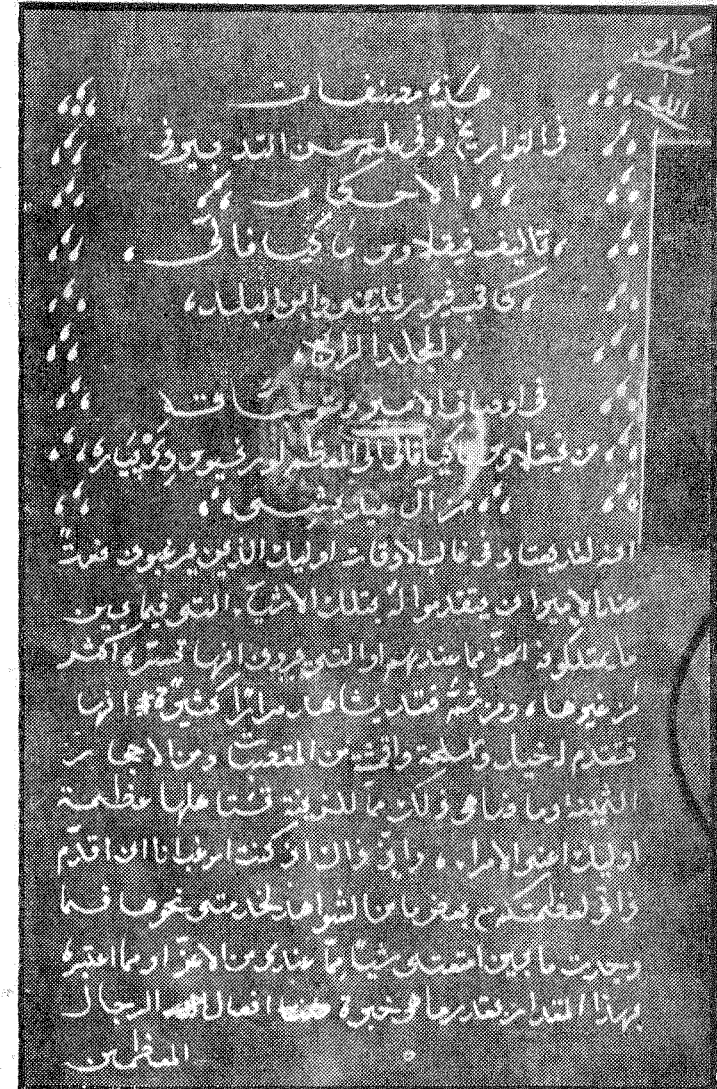 الله
هذه مصنفات
في التواريخ وفي علم حسن التدبير وفي
الاحكام
تاليف نيقلاوس ماكيافالي
كاتب فيورنتيني وابن البلد
المجلد الرابع
في اوصاف الامير
من نيقلاوس ماكيافالي الي المعظم لورنسيوس
من آل ميديشي
انه لقد يعتاد في غالب الاوقات اوليك الذين يرغبون نعمةً
عند الامير ان يتقدموا له بتلك الاشيا. التي فيما بين
ما يمتلكونه اعز مما عندهم او التي يرون انها تسره اكثر
من غيرها، ومن ثمَّ فقد يشاهد مرارًا كثيرة انها
تتقدم له خيل واسلحة واقشة من المقصبات ومن الاحجار
الثمينة وما ضاهي ذلك مما للزينة تستاهلها عظمة
اوليك اعني الامرا. واني فالان اذ كنت ارغب انا ان اقدم
ذاتي لعظمتكم ببعض ما من الشواهد لخدمتي نحوها فما
وجدت ما بين امتعتي شيًا مما عندي من الاعز او مما اعتبره
بهذا المقدار بقدر ما هي خبرة افعال الرجال
المعظمين